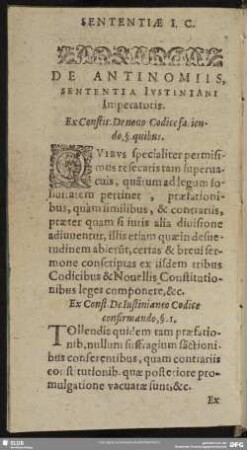 SENTENTIÆ I. C.
DE ANTINOMIIS,
SENTENTIA IVSTINIANI
Imperatoris.
Ex Constit. De nouo Codice facien-
do, §. quibus.
QVIBVS specialiter permisi-
mus resecatis tam superua-
cuis, quãtum ad legum so-
liditatem pertinet, præfationi-
bus, quàm similibus, & contrariis,
præter quam si iuris alia diuisione
adiuuentur, illis etiam quæ in desue-
tudinem abierũt, certas & breui ser-
mone conscriptas ex iisdem tribus
Codicibus & Nouellis Constitutio-
nibus leges componere, &c.
Ex Const. De Iustinianeo Codice
confirmando, §. 1.
Tollendis quidem tam præfatio-
nib. nullum suffragium sãctioni-
bus conferentibus, quàm contrariis
constitutionib. quæ posteriore pro-
mulgatione vacuatæ sunt, &c.
Ex
SLUB